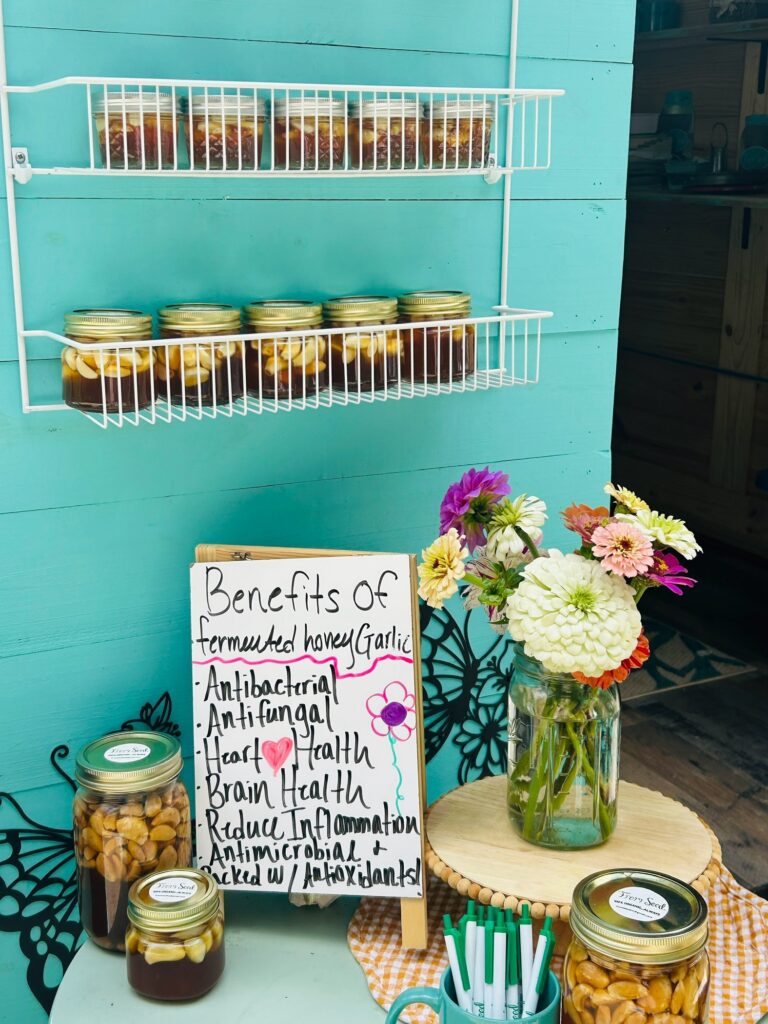 Benefits of
fermented honey Garlic
· Antibacterial
· Antifungal
· Heart Health
· Brain Health
· Reduce Inflammation
· Antimicrobial +
Packed w/ Antioxidants!
From Seed
From Seed